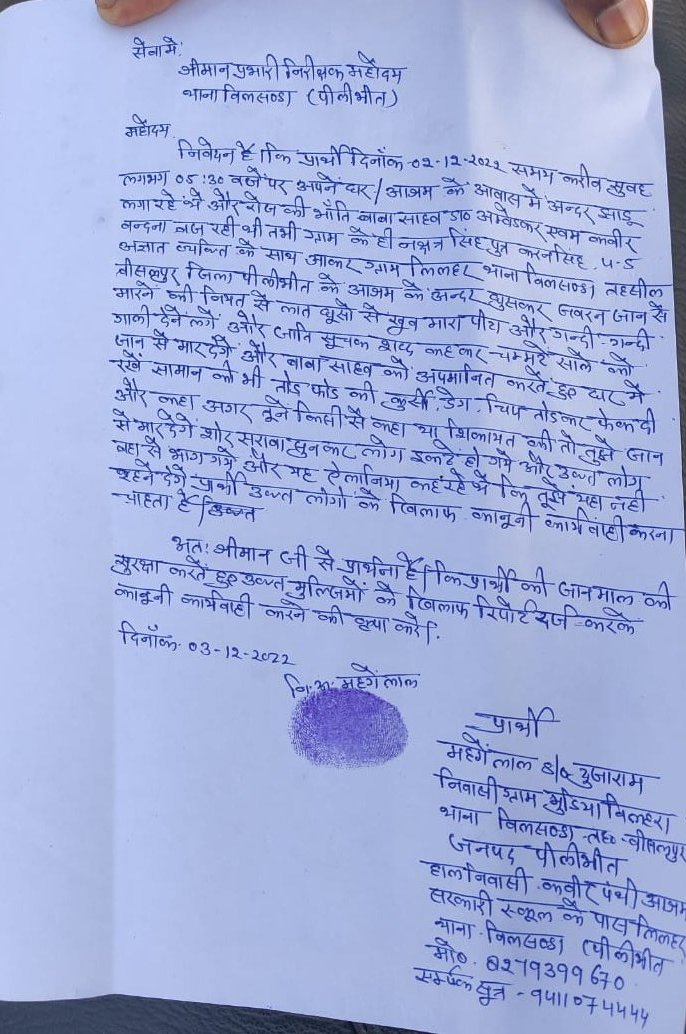 सेवामें,
श्रीमान प्रभारी निरीक्षक महोदय
थाना विलसण्डा (पीलीभीत)
महोदय,
निवेदन है कि प्रार्थी दिनाँक-02-12-2022 समय करीब सुबह
लगभग 05:30 बजे पर अपने द्वार/आश्रम के आवास में अन्दर झाडू
लगा रहे थे और रोज की भाँति बाबा साहब डा० अम्बेडकर एवम कबीर
वन्दना बज रही थी तभी ग्राम के ही नक्षत्र सिंह पुत्र करनसिंह, 4-5
अज्ञात व्यक्ति के साथ आकर ग्राम लिलहर थाना विलसण्डा तहसील
बीसलपुर जिला पीलीभीत के आश्रम के अन्दर घुसकर जबरन जान से
मारने की नियत से लात घूसो से खूब मारा पीटा और गन्दी-गन्दी
गाली देने लगे और जाति सूचक शब्द कहकर चम्मटे साले को
जान से मार देगें और बाबा साहब को अपमानित करते हुए द्वार में
रखें सामान को भी तोड फोड की कुर्सी, डेग, चिप तोडकर फेंक दी
और कहा अगर तूने किसी से कहा या शिकायत की तो तुझे जान
से मार देगें शोर सराबा सुनकर लोग इकटे हो गये और उक्त लोग
वहा से भाग गये और यह ऐलानिया कह रहे थे कि तूझे यहा नही
रहने देगें प्रार्थी उक्त लोगो के खिलाफ कानूनी कार्यवाही करना
चाहता है
अतः श्रीमान जी से प्रार्थना है कि प्रार्थी की जानमाल की
सुरक्षा करते हुए उक्त मुल्जिमों के खिलाफ रिपोर्ट दर्ज करके
कानूनी कार्यवाही करने की कृपा करें।
दिनाँक-03-12-2022
नि.अ. महगेंलाल
प्रार्थी
महगेंलाल S/o दुजाराम
निवासी ग्राम मुडिया विलहरा
थाना विलसण्डा तह० बीसलपुर
जनपद पीलीभीत
हाल निवासी कबीर पंथी आश्रम
सरकारी स्कूल के पास लिलहर
थाना विलसण्डा (पीलीभीत
मो०. 8279399670
सम्पर्क सूत्र - 9411074444